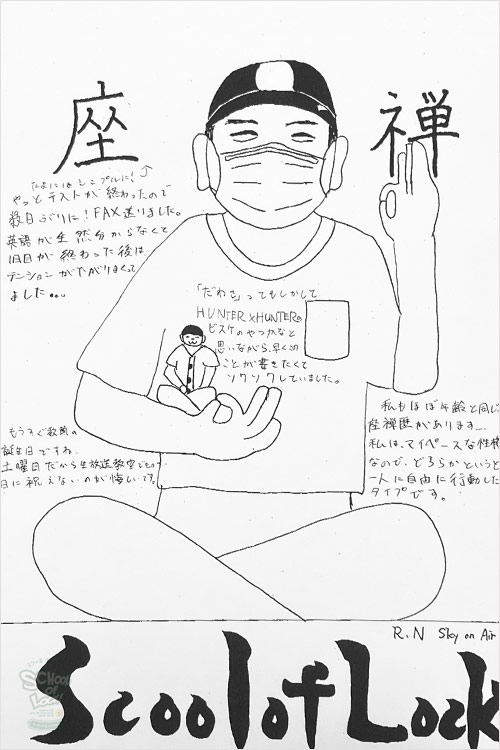 座禅
たまにはシンプルに!
やっとテストが終わったので
数日ぶりに!FAX送りました。
英語が全然分からなくて
1日目が終わった後は
テンションがただがりまくって
ました…
「だわさ」ってもしかして
HUNTER×HUNTERの
ビスケのやつかなと
思いながら、早くこの
ことが書きたくて
ウズウズしていました。
もうすぐ教頭の
誕生日ですね
土曜日だから生放送教室でもその
日に祝えないのが悔しいです。
私もほぼ年齢と同じ
座禅歴があります…
私は、マイペースな性格
なので、どちらかというと
一人に自由に行動した
タイプです。
R.N Sky on Air
Scool of Lock
SCHOOL
OF
LOCK!